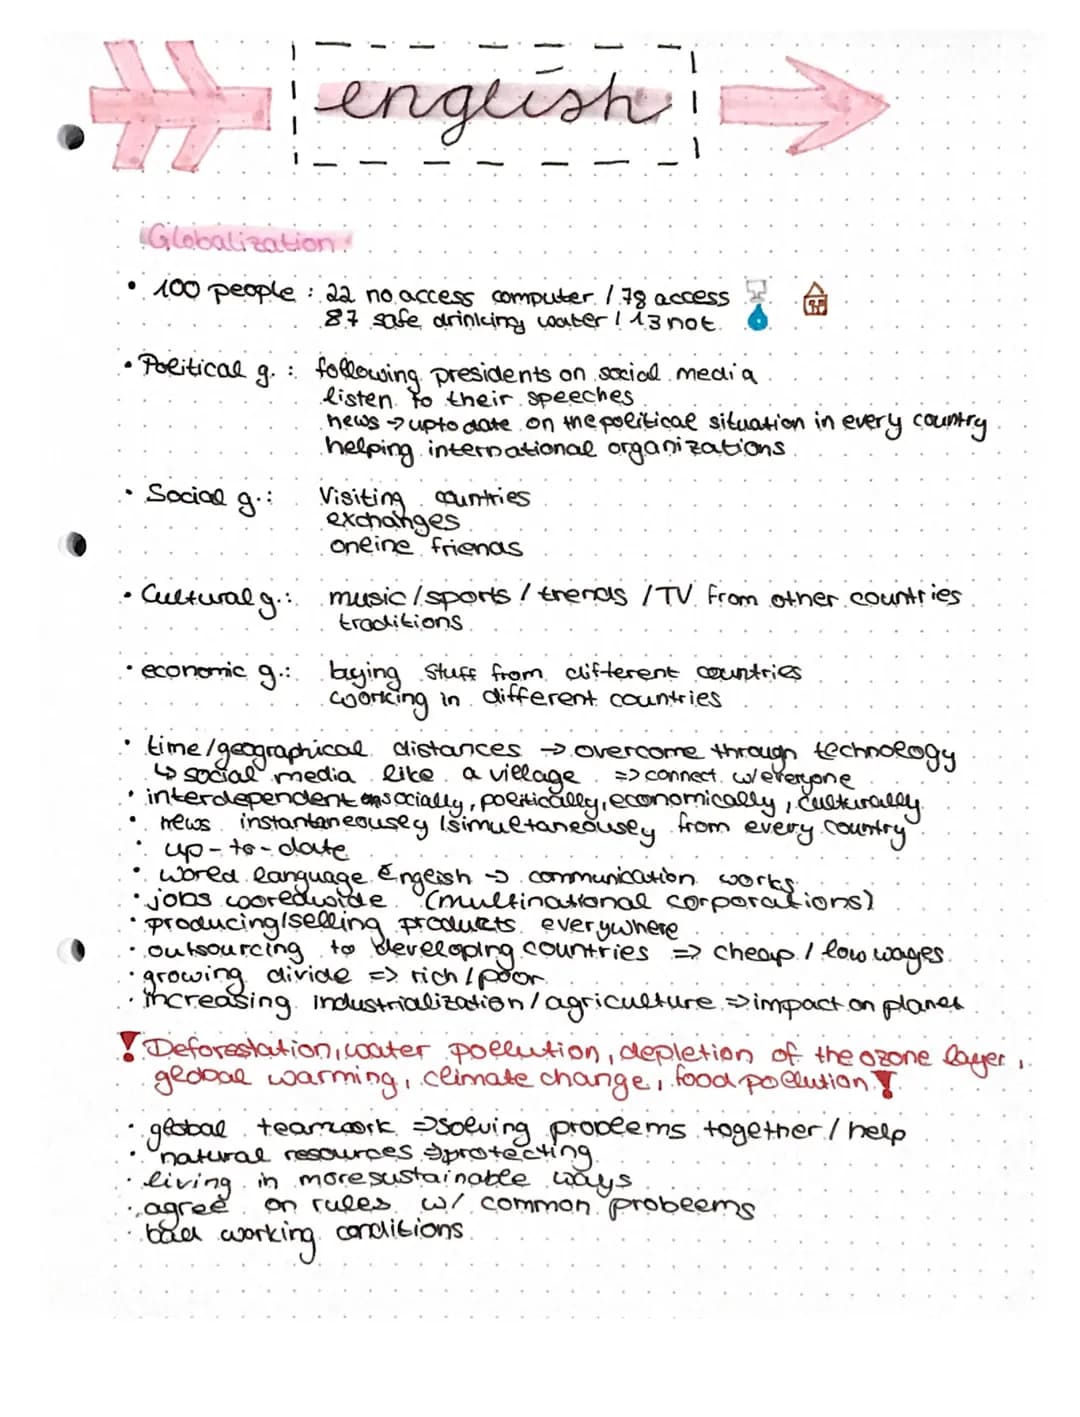 english
Globalization:
• 100 people : 22 no access computer / 78 access
87 safe drinking water / 13 not
• Political g. : following presidents on social media
listen to their speeches
news → up to date on the political situation in every country
helping international organizations
• Social g.: Visiting countries
exchanges
online friends
• Cultural g.: music / sports / trends / TV from other countries
traditions
• economic g.: buying stuff from different countries
working in different countries
• time/geographical distances → overcome through technology
↳ social media like a village => connect w/ everyone
• interdependent on socially, politically, economically, culturally
• news instantaneously / simultaneously from every country
• up-to-date
• world language English → communication works
• jobs worldwide (multinational corporations)
• producing/selling products everywhere
• outsourcing to developing countries => cheap / low wages
• growing divide => rich / poor
• increasing industrialization / agriculture => impact on planet
! Deforestation, water pollution, depletion of the ozone layer,
global warming, climate change, food pollution !
• global teamwork => solving problems together / help
• natural resources => protecting
• living in more sustainable ways
• agree on rules w/ common problems
• bad working conditions